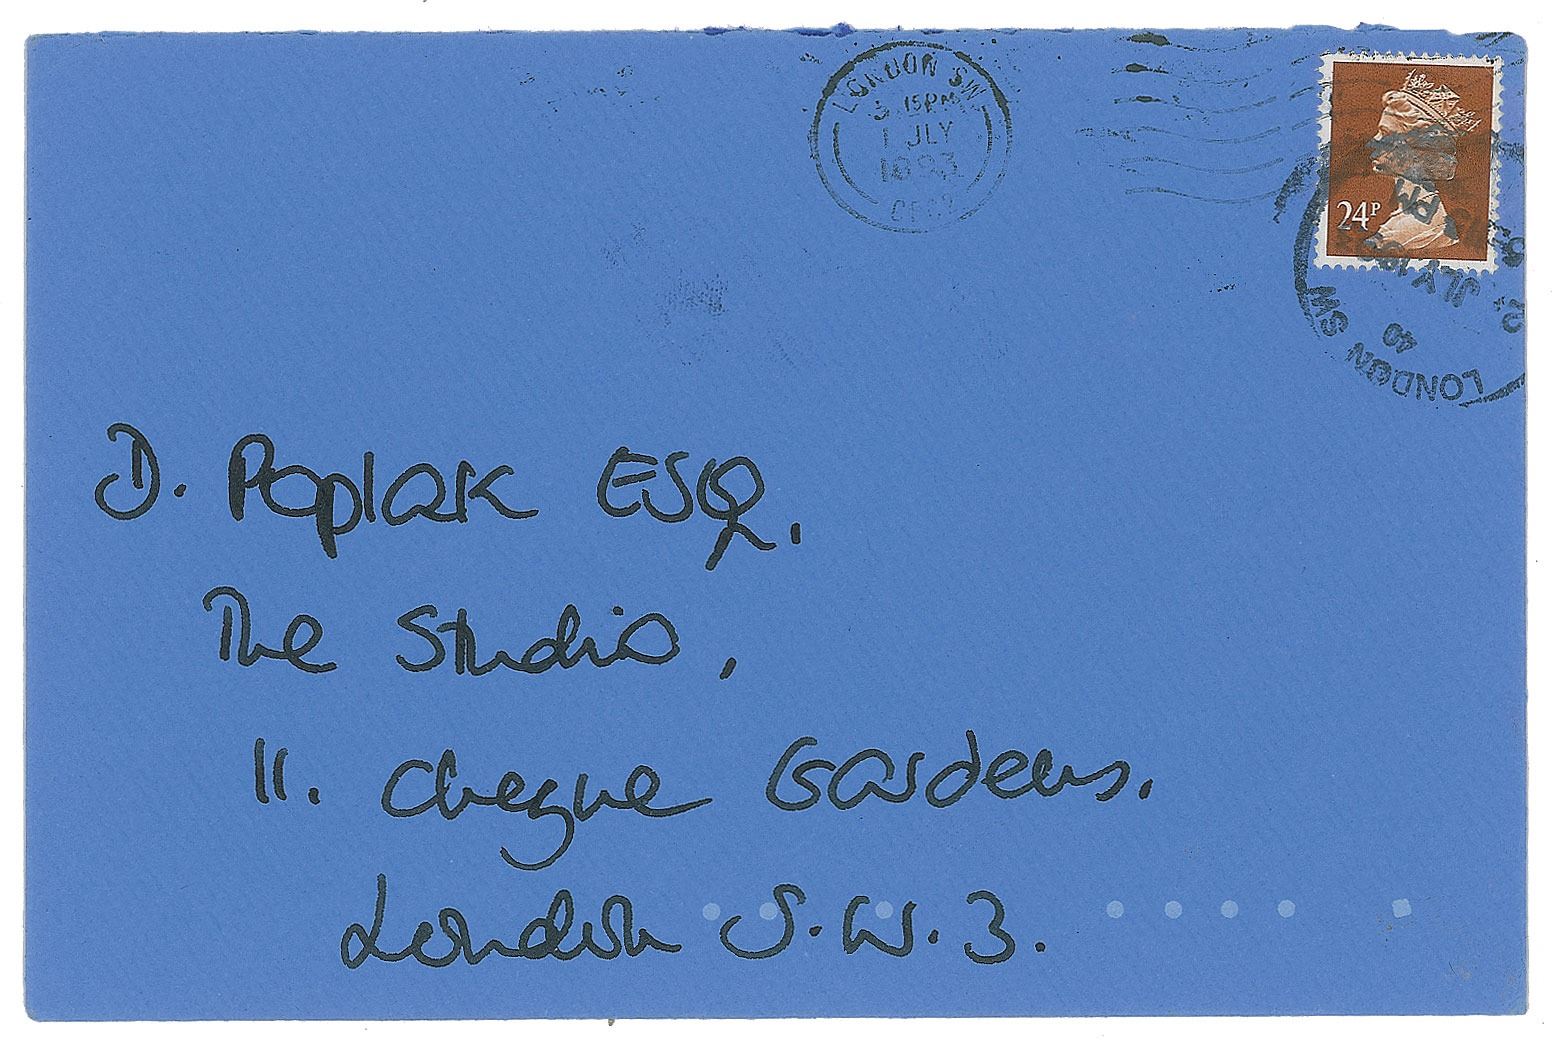 LONDON SW
3 15PM
1 JLY
1993
24P
LONDON SW
40
JLY
PM
D. Poplak ESQ.
The Studio,
11. Cheyne Gardens.
London S.W.3.